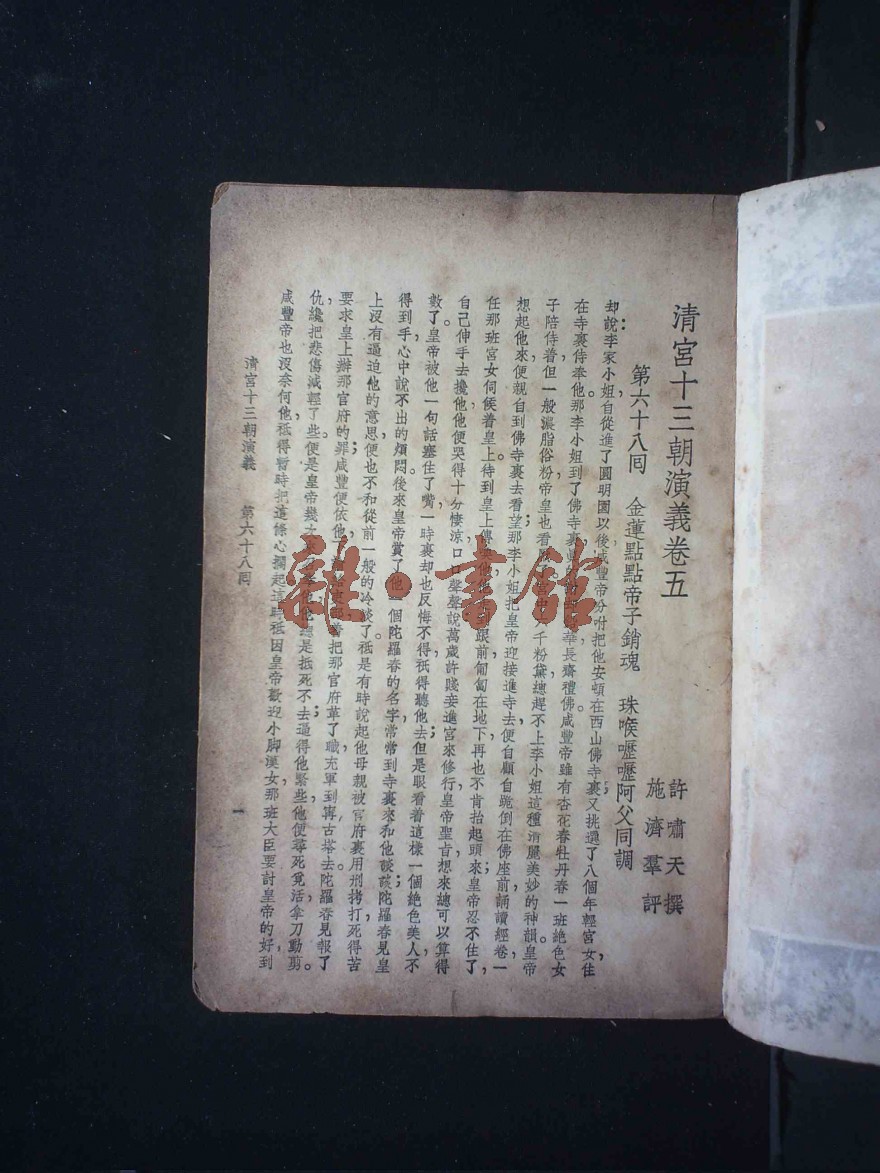 清宮十三朝演義卷五
許嘯天 撰
施濟羣 評
第六十八回 金蓮點點帝子銷魂 珠喉嚦嚦阿父同調
却說：李家小姐自從進了圓明園以後，咸豐帝吩咐把他安頓在西山佛寺裏；又挑選了八個年輕宮女，住
在寺裏侍奉他。那李小姐到了佛寺裏，華長齋禮佛。咸豐帝雖有杏花春牡丹春一班絕色女
子陪侍着，但一般濃脂俗粉，帝皇也看千粉黛，總趕不上李小姐這種清麗美妙的神韻。皇帝
想起他來，便親自到佛寺裏去看望；那李小姐把皇帝迎接進寺去，便自顧自跪倒在佛座前，誦讀經卷，一
任那班宮女伺候着皇上。待到皇上傳跟前，匍匐在地下，再也不肯抬起頭來。皇帝忍不住了，
自己伸手去攙他，他便哭得十分悽涼，口口聲聲說：萬歲許賤妾進宮來修行，皇帝聖旨，想來總可以算得
數了。皇帝被他一句話塞住了嘴，一時裏却也反悔不得，祇得聽他去。但是眼看着這樣一個絕色美人，不
得到手，心中說不出的煩悶。後來皇帝賞了他一個陀羅春的名字，常常到寺裏來和他談談；陀羅春見皇
上沒有逼迫他的意思，便也不和從前一般的冷談了。祇是有時說起他母親被官府裏用刑拷打，死得苦
要求皇上辦那官府的罪；咸豐便依他，把那官府革了職，充軍到寗古塔去。陀羅春見報了
仇，纔把悲傷減輕了些。便是皇帝幾次總是抵死不去；逼得他緊些，他便尋死覓活，拿刀動剪。
咸豐帝也沒奈何他，祇得暫時把這條心擱起。這時祇因皇帝歡迎小脚漢女，那班大臣要討皇帝的好，到
清宮十三朝演義 第六十八回
一
雜·書館